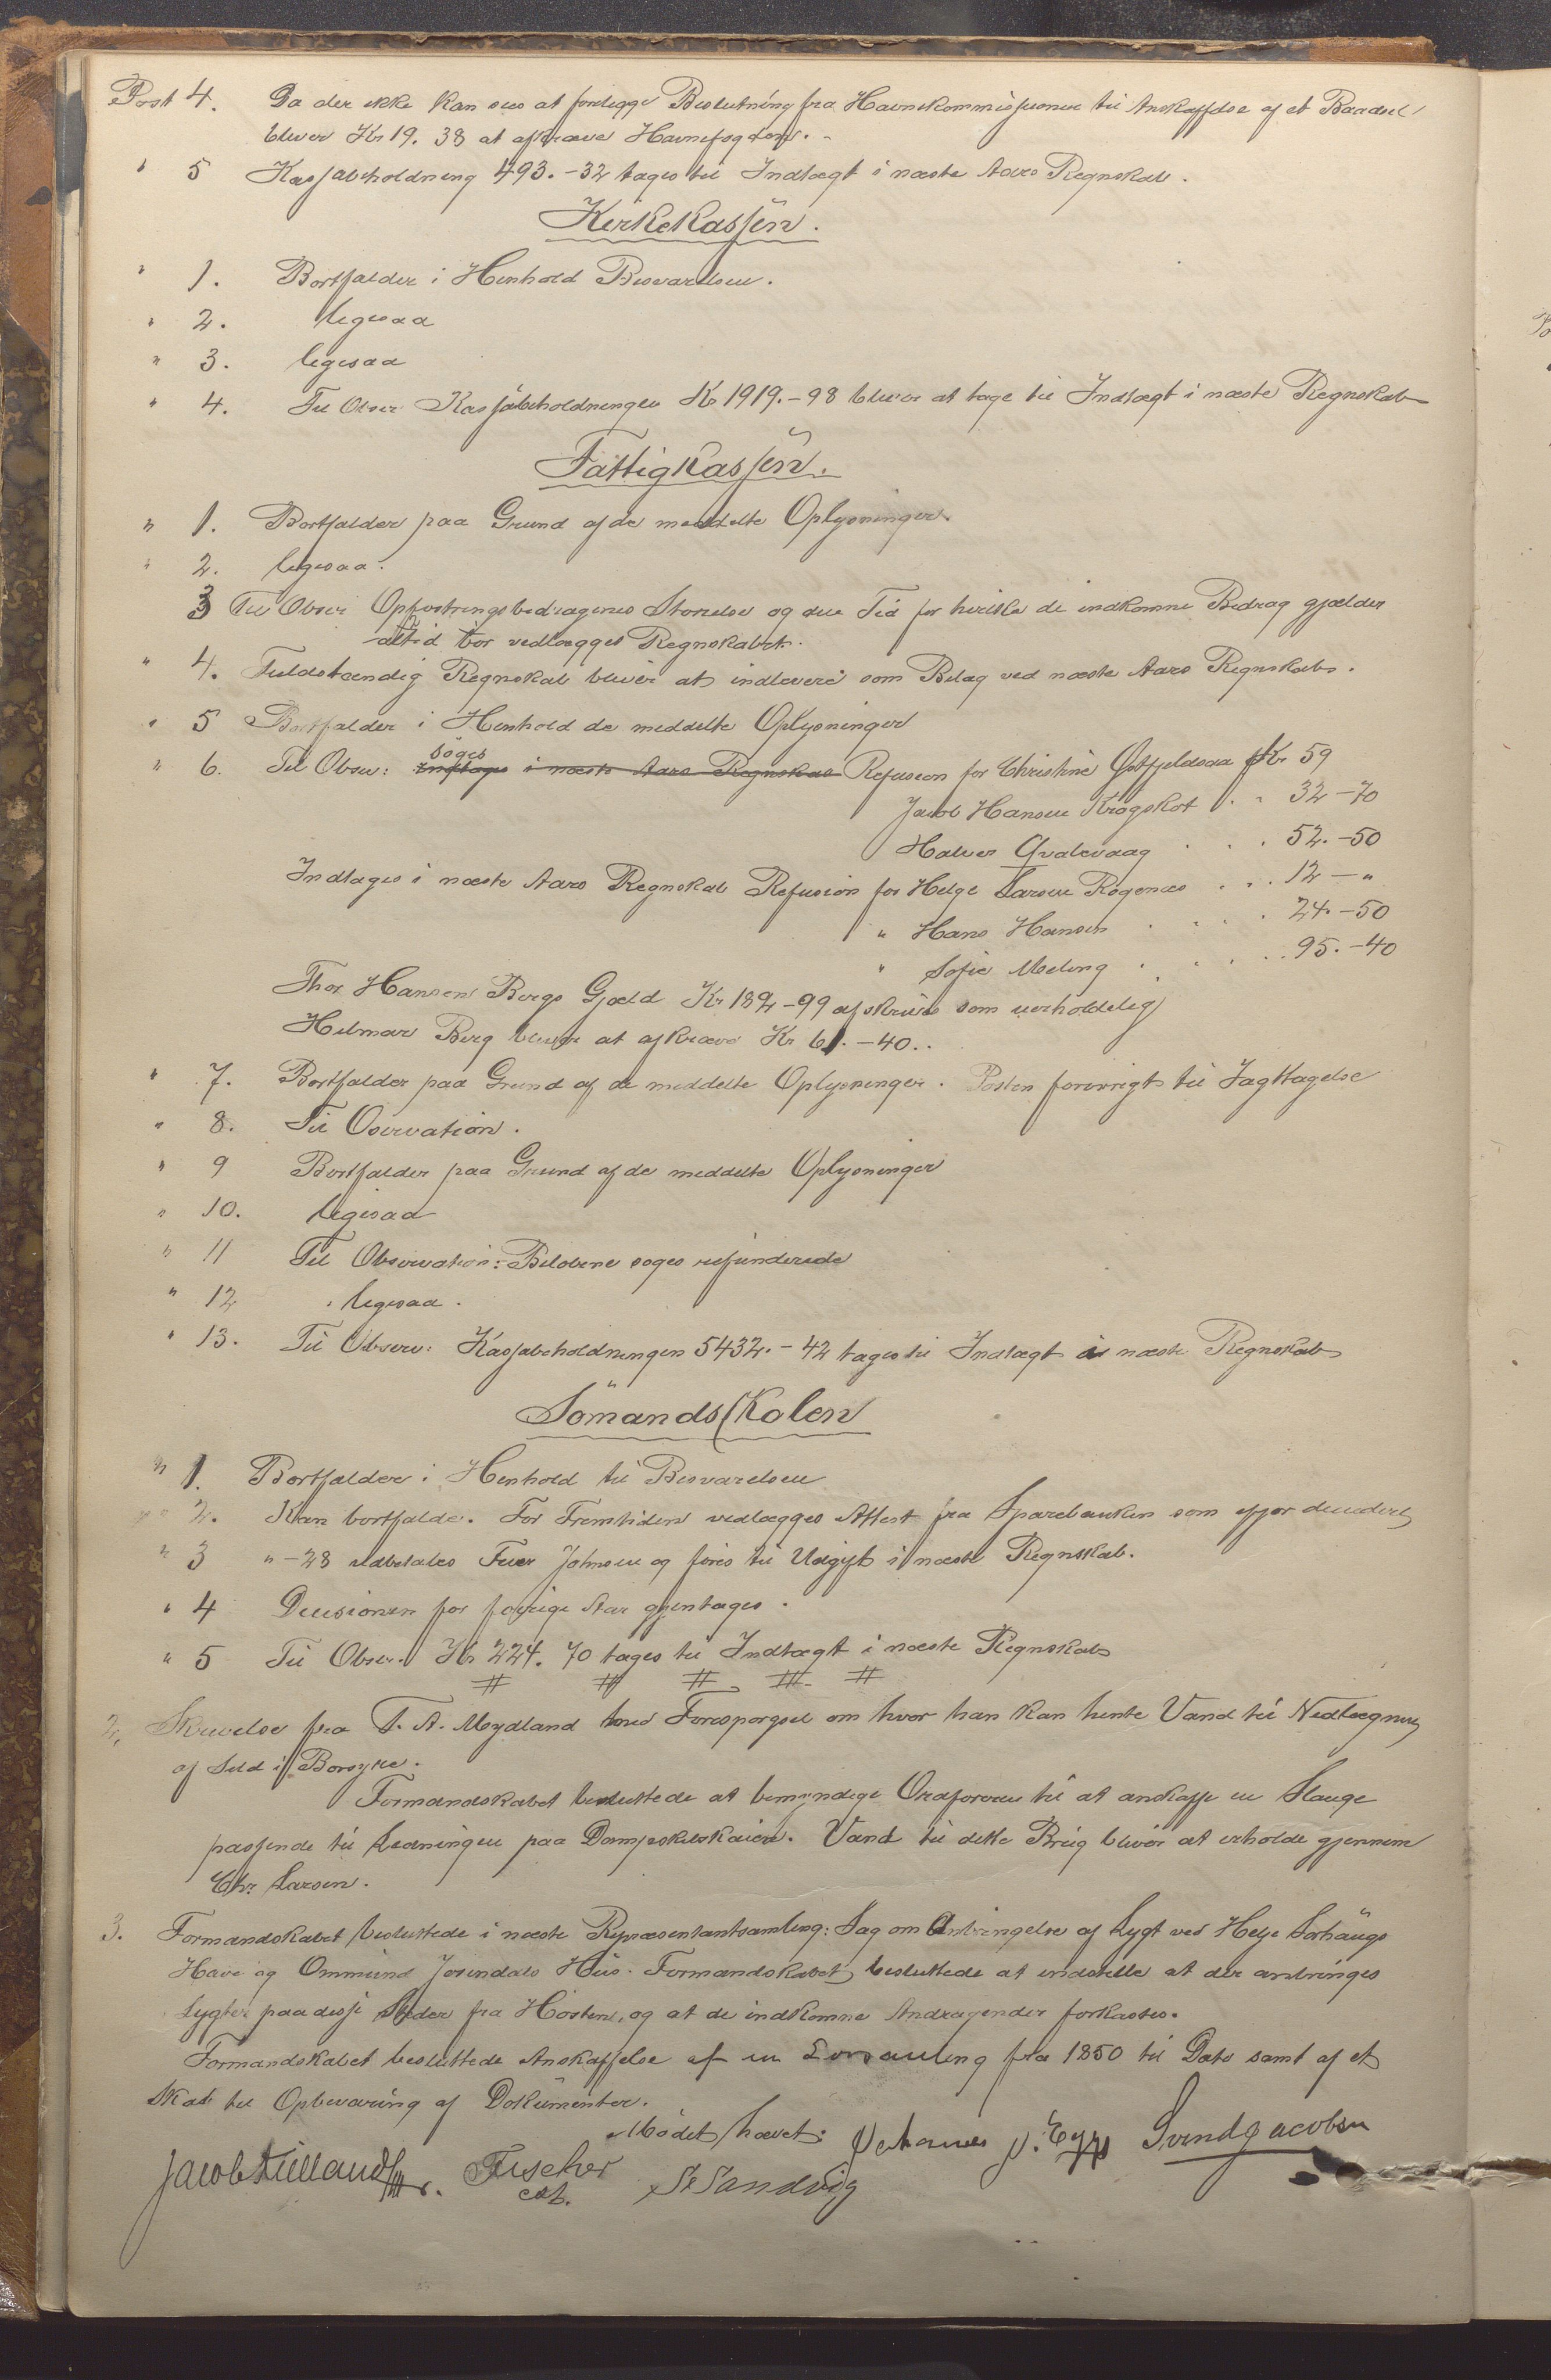 Post 4. Da der ikke kan sees at foreligge Beslutning fra Havnekommissionen til Anskaffelse af et Baadseil
bliver Kr 19. 38 at afkræve Havnefogden. -
" 5 Kassabeholdning 493.-32 tages til Indtægt i næste Aars Regnskab.
Kirkekassen.
" 1. Bortfalder i Henhold Besvarelsen.
" 2. ligesaa
" 3. ligesaa
" 4. Til Obser Kassabeholdningen Kr 1919.-98 bliver at tage til Indtægt i næste Regnskab
Fattigkassen.
" 1. Bortfalder paa Grund af de meddelte Oplysninger.
" 2. ligesaa.
3 Til Obser Opfostringsbidragenes Størrelse og den Tid for hvilke de indkomne Bidrag gjælder
altid bør vedlægges Regnskabet.
" 4. Fuldstændig Regnskab bliver at indlevere som Bilag ved næste Aars Regnskab.
" 5 Bortfalder i Henhold de meddelte Oplysninger
" 6. Til Obser: søges Indtages i næste Aars Regnskab Refusion for Christine Østfjeldsaa Kr 59
Jacob Hansen Krogskot " " 32-70
Halvor Qvalevaag " " " 52.-50
Indtages i næste Aars Regnskab Refusion for Helge Larsen Røgenæs . . . 12-"
" Hans Hansen . . . . 24.-50
" Sofie Meling . . . . 95.-40
Thor Hansen Bergs Gjæld Kr 182-99 afskrives som uerholdelig
Hilmar Berg bliver at afkræve Kr 61.-40..
" 7. Bortfalder paa Grund af de meddelte Oplysninger. Posten forøvrigt til Iagttagelse
" 8. Til Oservation.
" 9 Bortfalder paa Grund af de meddelte Oplysninger
" 10. ligesaa
" 11 Til Observation: Beløbene søges refunderede
" 12 ligesaa.
" 13. Til Observ: Kassabeholdningen 5432.-42 tages til Indtægt i næste Regnskab
Sømandsskolen
" 1. Bortfalder i Henhold til Besvarelsen
" 2. Kan bortfalde. For Fremtiden vedlægges Attest fra Sparebanken som
" 3 "-28 udbetales Johnsen og føres til Udgift i næste Regnskab.
" 4 Decisionen for forrige Aar gjentages.
" 5 Til Obser. Kr 224. 70 tages til Indtægt i næste Regnskab
2, Skrivelse fra T. A. Meydland med Forespørgsel om hvor han kan hente Vand til Nedlægning
af Sild i Borsyre.
Formandskabet besluttede at bemyndige Ordføreren til at anskaffe en Slange
passende til Ledningen paa Dampskibskaien. Vand til dette Brug bliver at erholde gjennem
Chr. Larsen.
3. Formandskabet besluttede i næste Repræsentantsamling: Sag om Anbringelse af Lygt ved Helje Sørhaugs
Have og Ommund Josendals Hus. Formandskabet besluttede at indstille at der anbringes
Lygter paa disse Steder fra Høsten, og at de indkomne Andragender forkastes.
Formandskabet besluttede Anskaffelse af en Lovsamling fra 1850 til Dato samt af et
Skab til Opbevaring af Dokumenter.
Mødet hævet.
Svend Jacobsen
Jacob Kielland Fischer S. Sandvig